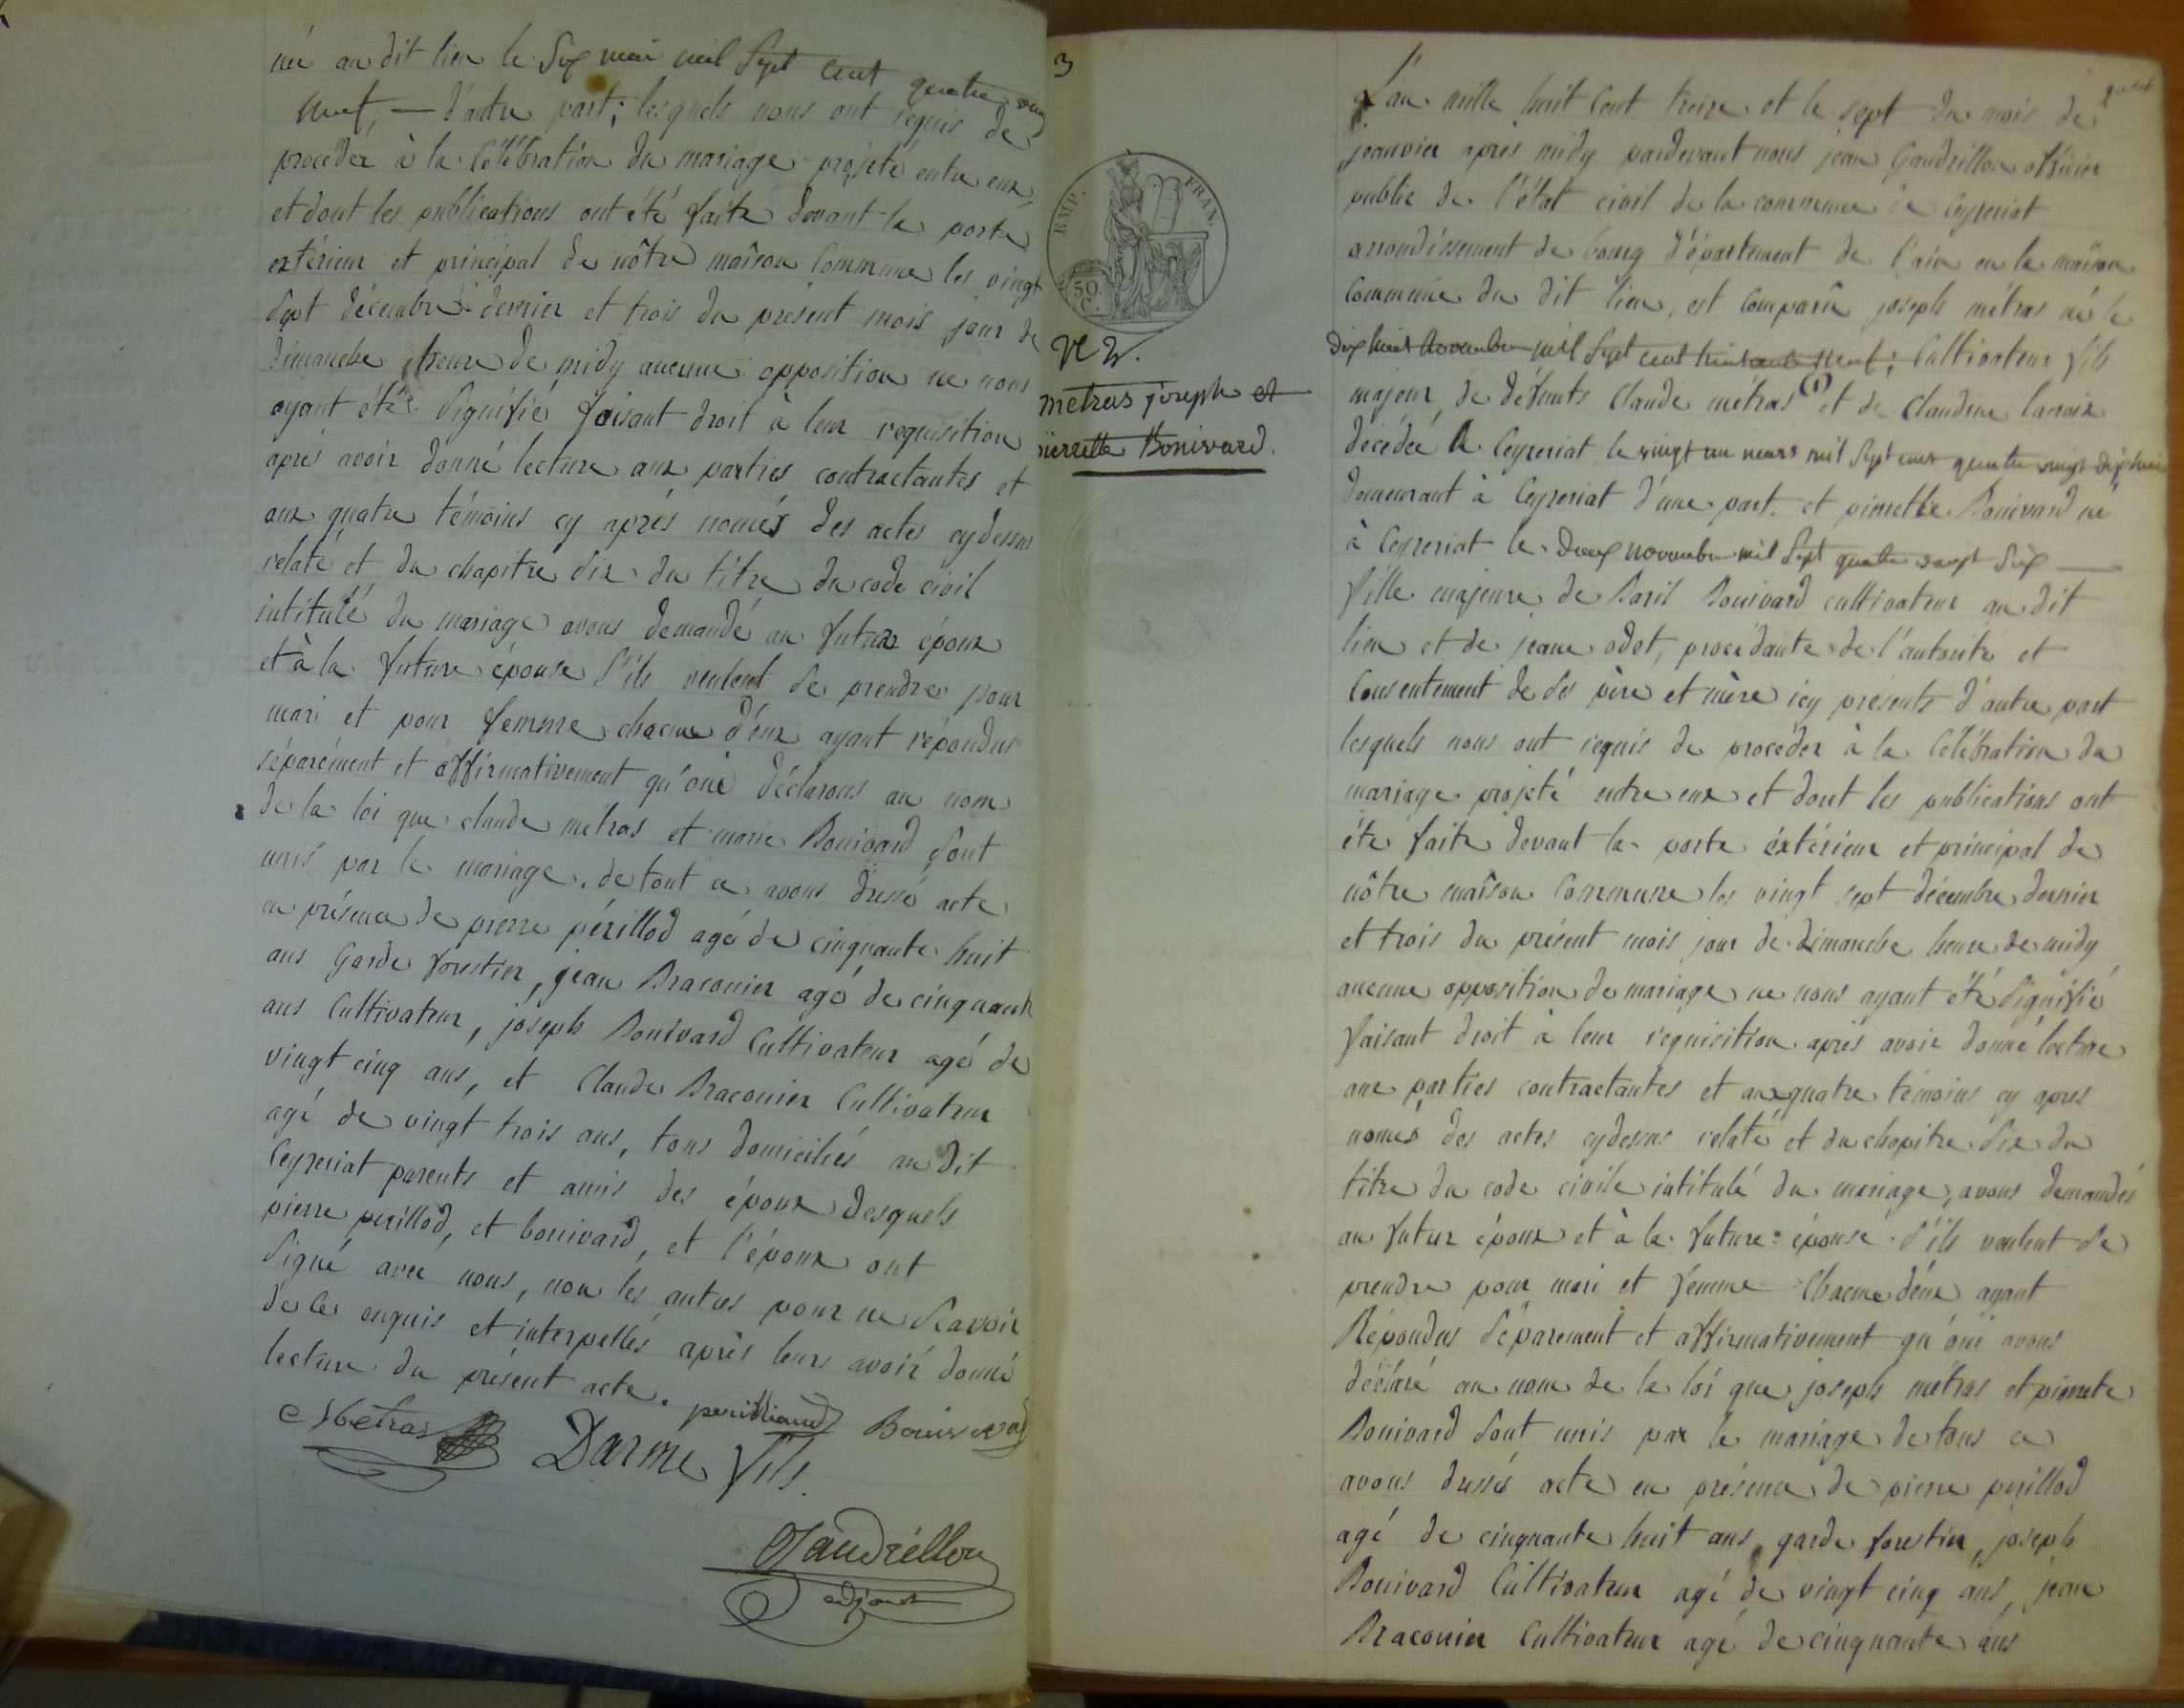 né au dit lieu le Six mai mil Sept cent quatre vingt
neuf, — d'autre part; lesquels nous ont requis de
procéder à la Célébration du mariage projeté entre eux
et dont les publications ont été faite devant la porte
extérieur et principal de nôtre maîson Commune les vingt
Sept décembre dernier et trois du présent mois jour de
dimanche heure de midy aucune opposition ne nous
ayant été Signifié faisant droit à leur requisition
après avoir donné lecture aux parties contractantes et
aux quatre témoins cy après només des actes cydessus
relaté et du chapitre Six du titre du code civil
intitulé du mariage avons demandé au futur époux
et à la future épouse S'ils veulent se prendre pour
mari et pour femme chacun d'eux ayant répondus
séparément et affirmativement qu'oui déclarons au nom
de la loi que claude metras et marie Bonivard Sont
unis par le mariage. de tout ce avons dressé acte
en présence de pierre périllod agé de cinquante huit
ans Garde forestier, jean Braconier agé de cinquante
ans Cultivateur, joseph Bonivard Cultivateur agé de
vingt cinq ans, et Claude Braconier Cultivateur
agé de vingt trois ans, tous domiciliés au dit
Ceyzeriat parents et amis des époux desquels
pierre perillod, et bonivard, et l'époux ont
Signé avec nous, non les autres pour ne Scavoir
de ce enquis et interpellés après leurs avoir donné
lecture du présent acte.
C Metras Darme fils. perilliaud Bonivard
Gaudrillon
adjoint
3
EMP. FRAN.
50.
C.
metras joseph et
pierrette Bonivard.
L'an mille huit Cent treize et le sept du mois de
jeanvier après midy pardevant nous jean Gaudrillon officier
public de l'état civil de la commune de Ceyzeriat
arrondissement de bourg département de l'ain en la maison
Commune du dit lieu, est Comparû joseph métras né le
Dix huit novembre mil Sept cent neuf; Cultivateur fils
majeur de défunts Claude métras (1) et de Claudine laroix
décédée à Ceyzeriat le vingt un mars mil Sept cent quatre vingt dix huit
demeurant à Ceyzeriat d'une part. et pierrette Bonivard né
à Ceyzeriat le deux novembre mil Sept quatre vingt Six
fille majeure de Basil Bonivard cultivateur au dit
lieu et de jeanne odet, procédante de l'autorité et
Consentement de ses père et mère icy présents d'autre part
lesquels nous ont requis de procéder à la Célébration du
mariage projeté entre eux et dont les publications ont
éte faite devant la porte extérieur et principal de
nôtre maîson Commune les vingt sept décembre dernier
et trois du présent mois jour de dimanche heure de midy
aucune opposition de mariage ne nous ayant été Signifié
faisant droit à leur requisition après avoir donné lecture
aux parties contractantes et aux quatre témoins cy apres
només des actes cydessus relaté et du chapitre Six du
titre du code civile intitulé du mariage, avons demandés
au futur époux et à la future épouse S'ils veulent Se
prendre pour mari et femme Chacun déux ayant
Répondus Séparement et affirmativement qu'oui avons
déclaré au nom de la loi que joseph métras et pierrete
Bonivard Sont unis par le mariage de tous ce
avons dressés acte en présence de pierre périllod
agé de cinquante huit ans garde forestier, joseph
Bonivard Cultivateur agé de vingt cinq ans, jean
Braconier Cultivateur agé de cinquante ans